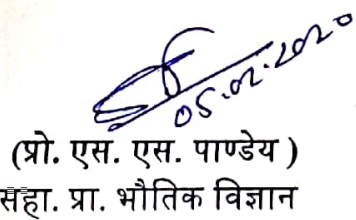 05.02.2020
(प्रो. एस. एस. पाण्डेय )
सहा. प्रा. भौतिक विज्ञान